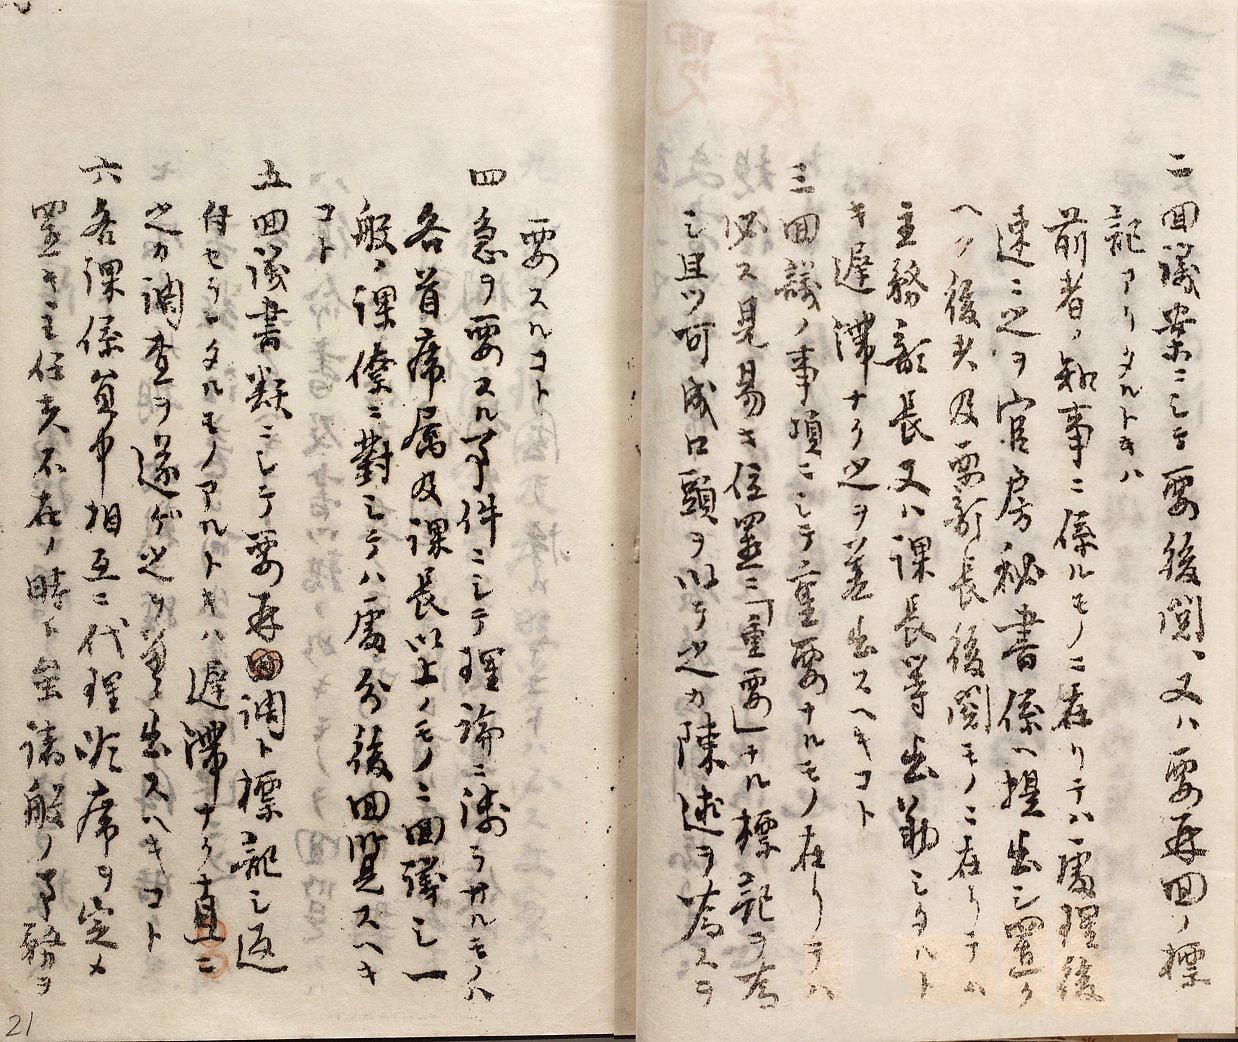 二 回議案ニシテ要後閲、又ハ要再回ノ標
記アリタルトキハ
前者ノ知事ニ係ルモノニ在リテハ處理後
速ニ之ヲ官房秘書係ヘ提出シ置ク
ヘク後者及要部長後閲モノニ在リテハ
主務部長又ハ課長等出勤シタルト
キ遅滞ナク之ヲ差出スヘキコト
三 回議ノ事項ニシテ重要ナルモノ在リテハ
必ス見易キ位置ニ「重要」ナル標記ヲ為
シ且ツ可成口頭ヲ以テ之カ陳述ヲ為スヲ
要スルコト
四 急ヲ要スル事件ニシテ理論ニ渉ラサルモノハ
各首席属及課長以上ノモノニ回議シ一
般ノ課僚ニ對シテハ處分後回覧スヘキ
コト
五 回議書類ニシテ要再回調ト標記シ返
付セラレタルモノアルトキハ遅滞ナク直ニ
之カ調査ヲ遂ゲ之ヲ差出スヘキコト
六 各課係員中相互ニ代理次席ヲ定メ
置キ主任者不在ノ時ト雖諸般ノ事務ヲ
21